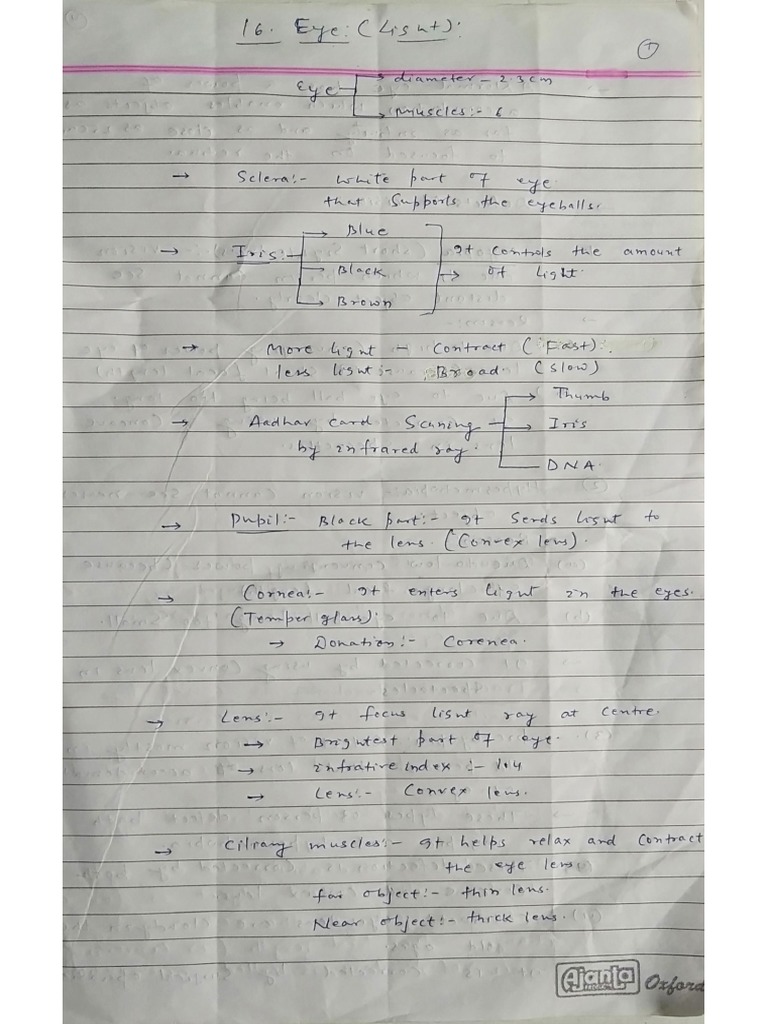 16. Eye: (Light):
1
Eye → diameter - 2.3 cm
→ Muscles:- 6
→ Sclera:- White part of eye
that supports the eyeballs.
→ Blue
→ Iris:- → Black
→ Brown
It controls the amount
→ of light.
→ More light - Contract (Fast).
less light:- Broad (Slow)
→ Aadhar card Scaning
by infrared ray.
→ Thumb
→ Iris
DNA.
→ Pupil:- Black part:- It sends light to
the lens. (Convex lens).
→ Cornea:- It enters light in the eyes.
(Temper glass).
→ Donation:- Corenea.
→ Lens:- It focus light ray at centre.
→ Brightest part of eye.
→ infrative index :- 1.4
→ Lens:- Convex lens.
→ Cilrany muscles:- It helps relax and contract
the eye lens.
far object:- thin lens.
Near object:- thick lens.
Ajanta Oxford